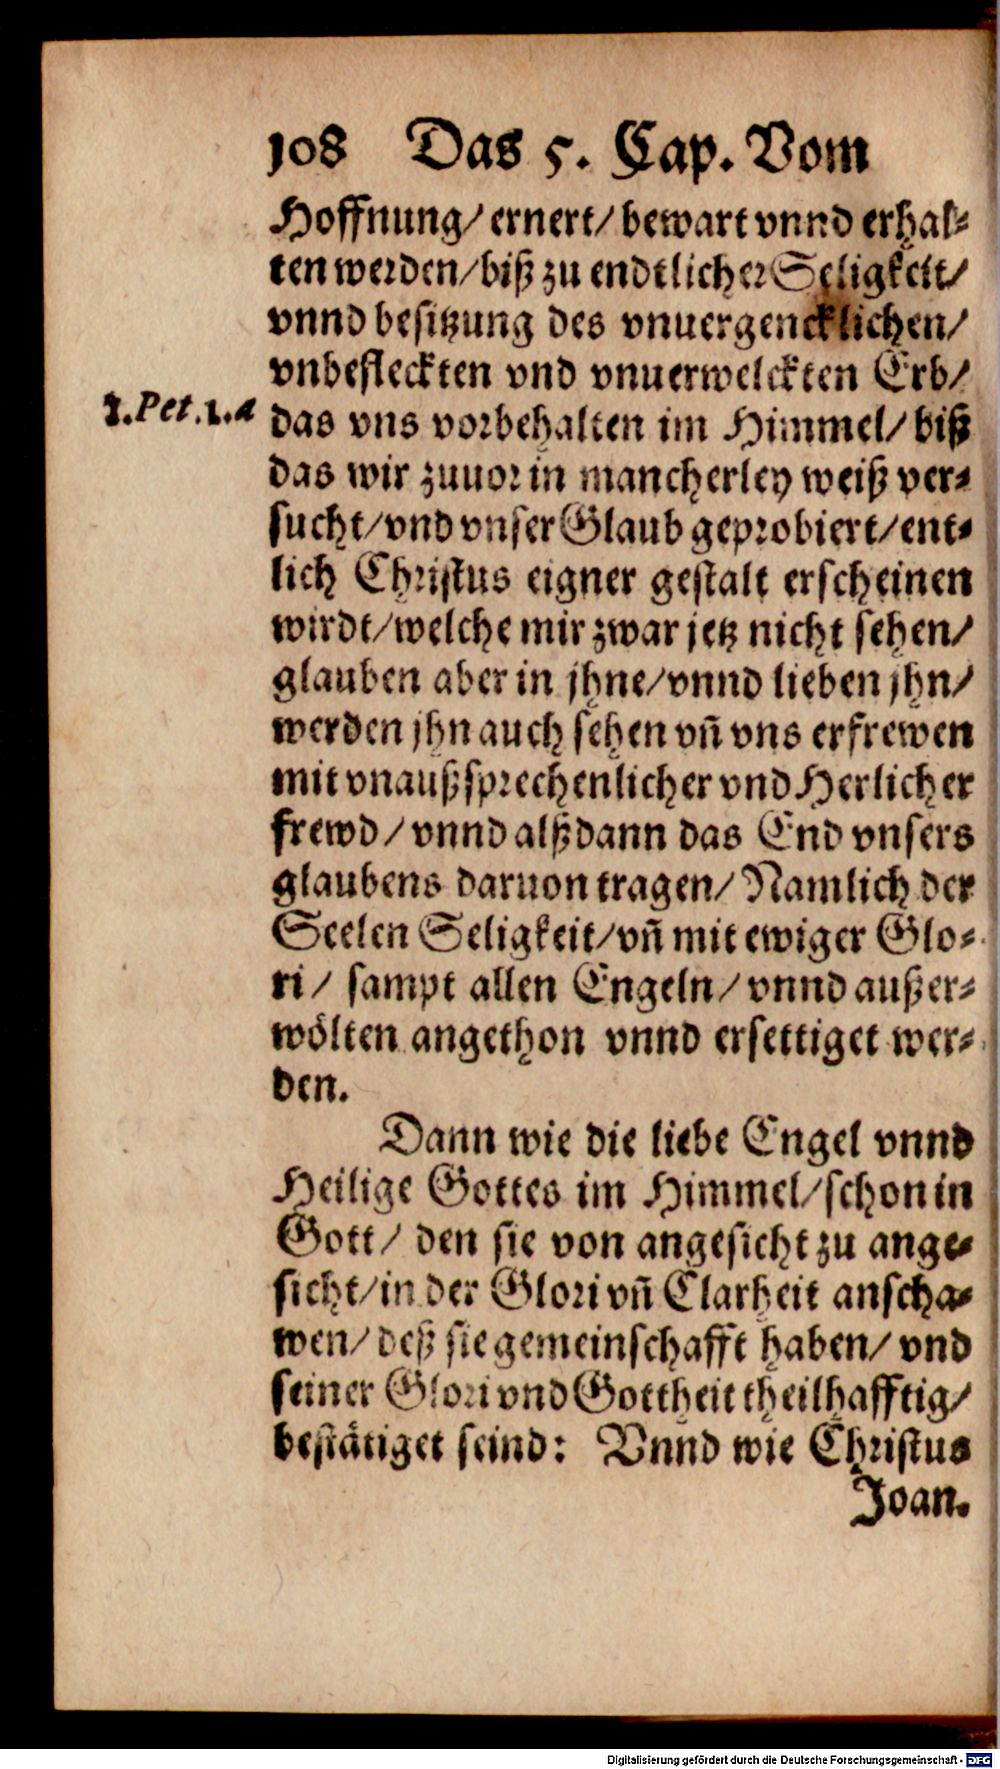 108 Das 5. Cap. Vom
Hoffnung/ ernert/ bewart vnnd erhal-
ten werden/ biß zu endtlicher Seligkeit/
vnnd besitzung des vnuergencklichen/
vnbefleckten vnd vnuerwelckten Erb/
1.Pet.1.a
das vns vorbehalten im Himmel/ biß
das wir zuuor in mancherley weiß ver-
sucht/ vnd vnser Glaub geprobiert/ ent-
lich Christus eigner gestalt erscheinen
wirdt/ welche mir zwar jetz nicht sehen/
glauben aber in jhne/ vnnd lieben jhn/
werden jhn auch sehen vñ vns erfrewen
mit vnaußsprechenlicher vnd Herlicher
frewd/ vnnd alßdann das End vnsers
glaubens daruon tragen/ Namlich der
Seelen Seligkeit/ vñ mit ewiger Glo-
ri/ sampt allen Engeln/ vnnd außer-
wölten angethon vnnd ersettiget wer-
den.
Dann wie die liebe Engel vnnd
Heilige Gottes im Himmel/ schon in
Gott/ den sie von angesicht zu ange-
sicht/ in der Glori vñ Clarheit anscha-
wen/ deß sie gemeinschafft haben/ vnd
seiner Glori vnd Gottheit theilhafftig/
bestätiget seind: Vnnd wie Christus
Joan.
Digitalisierung gefördert durch die Deutsche Forschungsgemeinschaft - DFG